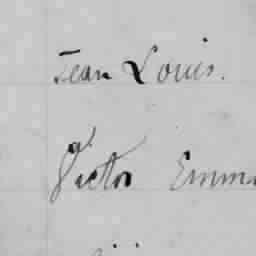 Jean Louis.
Victor Emma